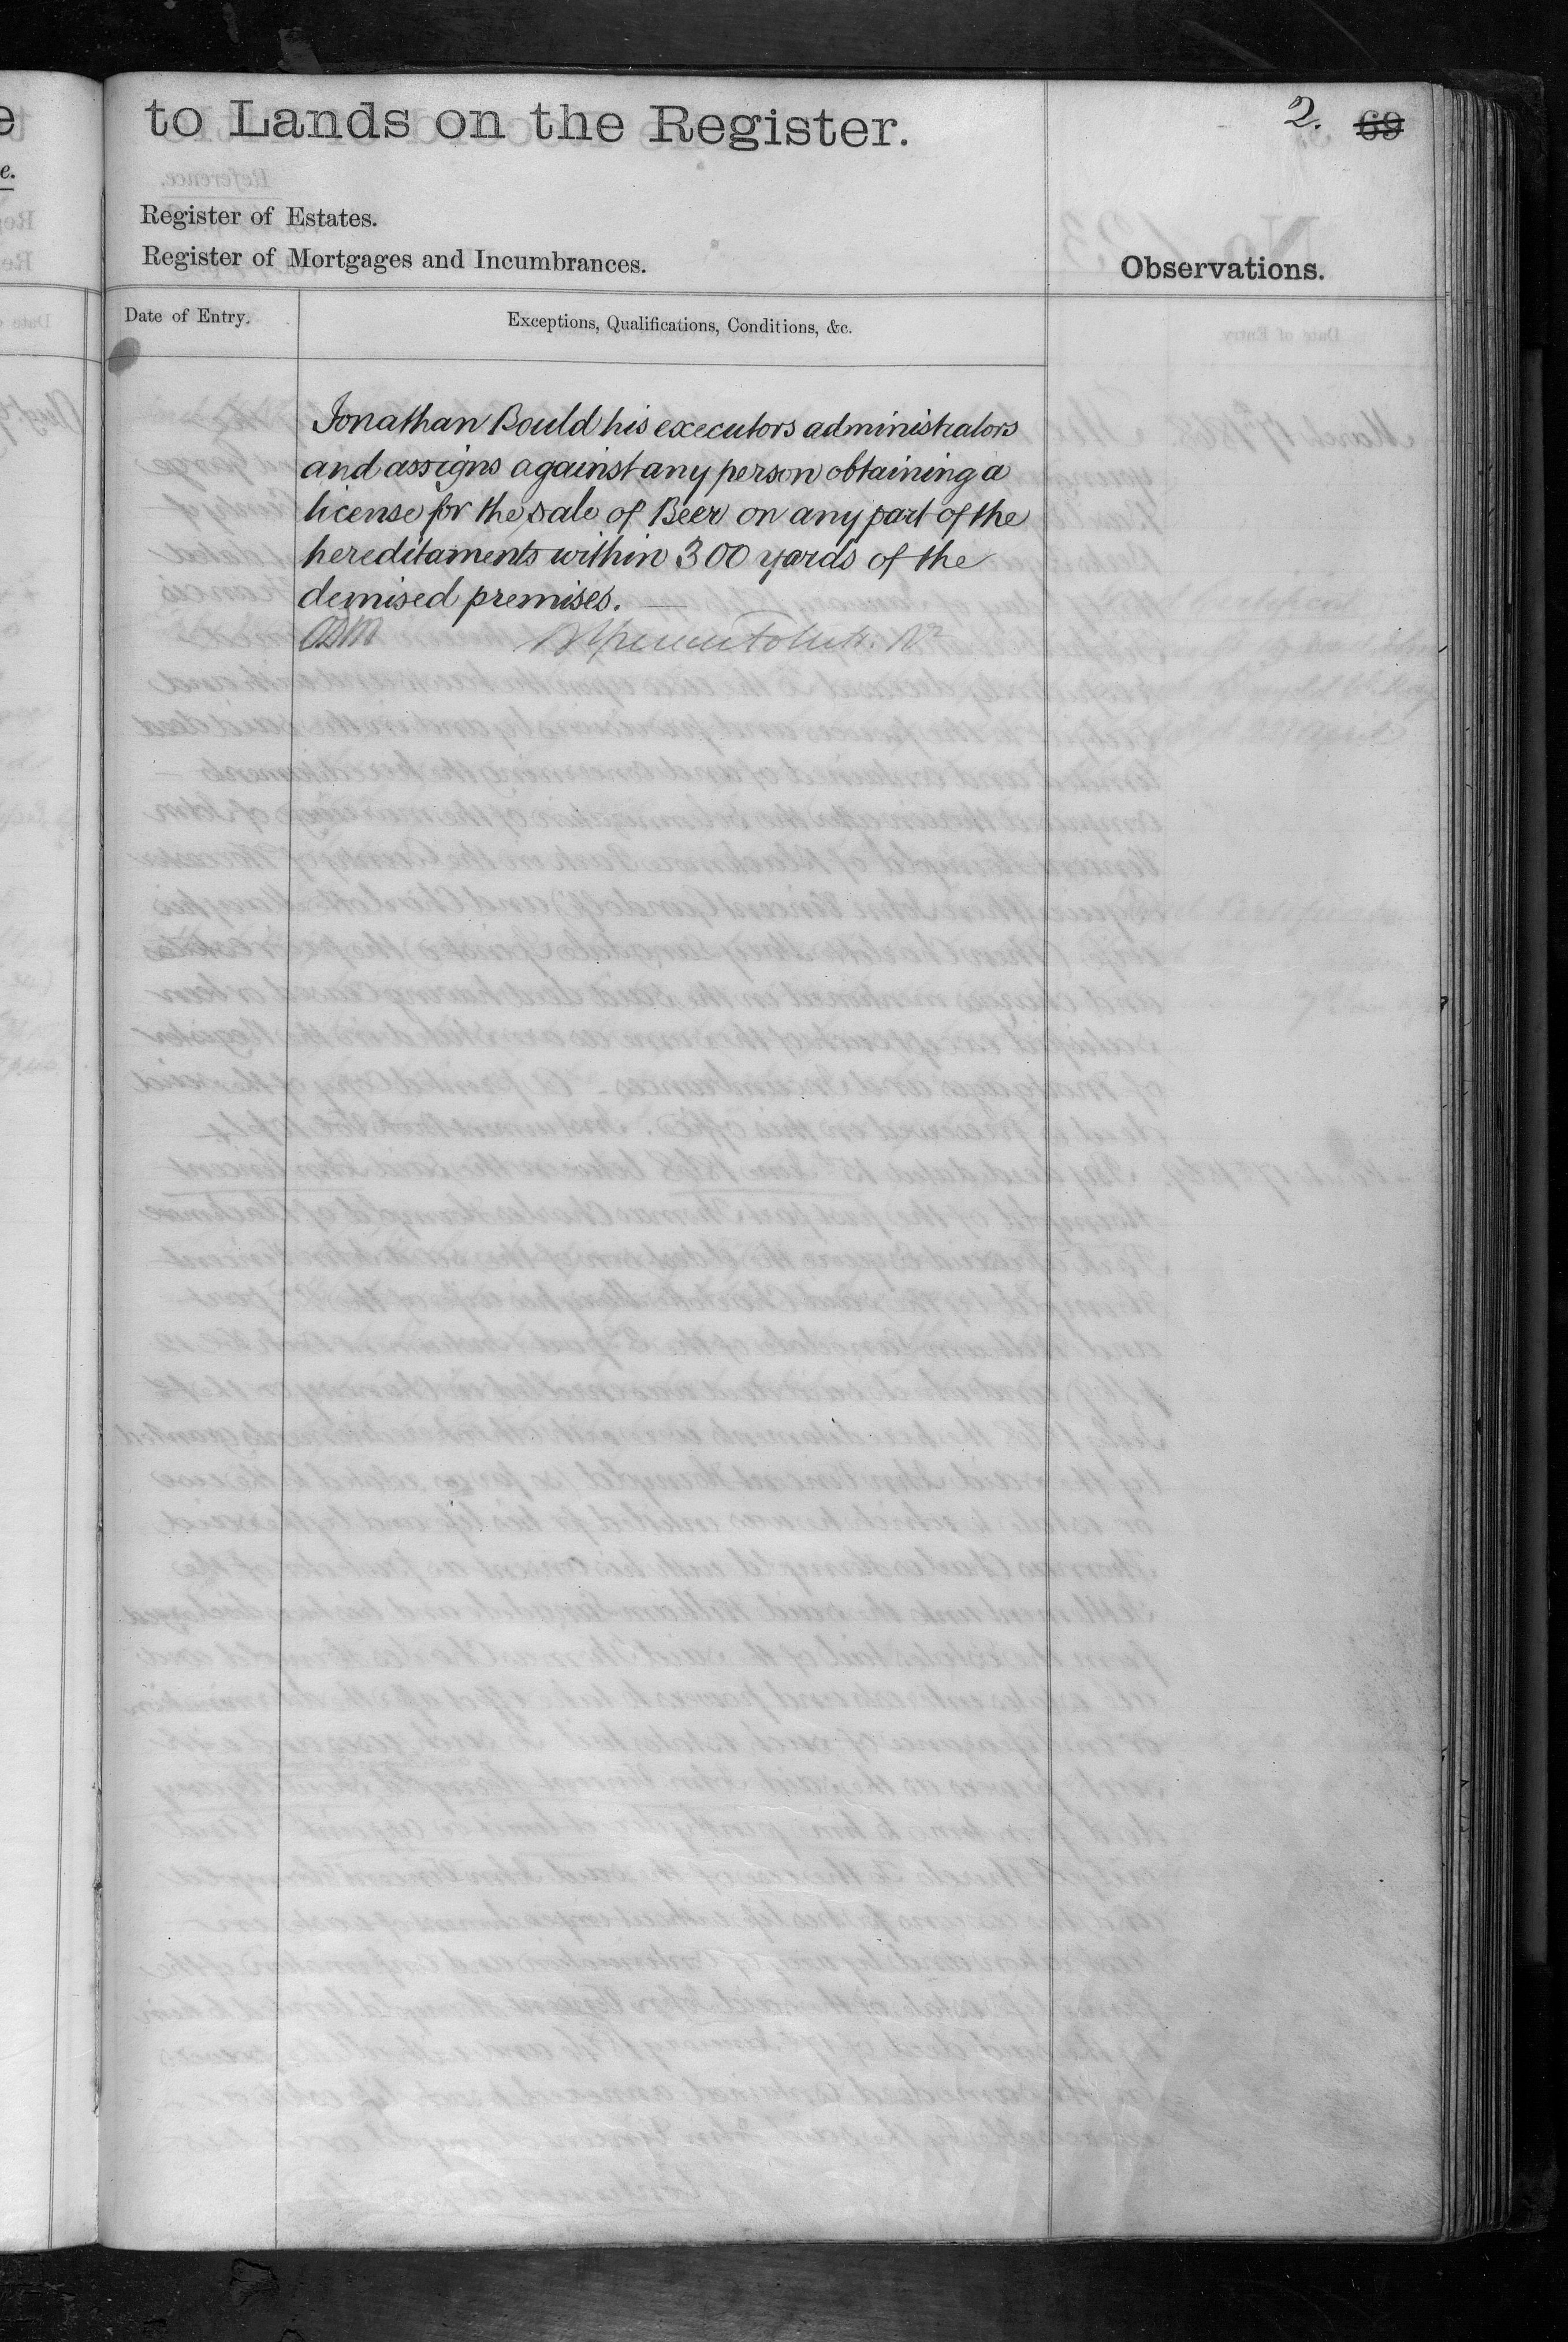 to Lands on the Register.
2. 69
Register of Estates.
Register of Mortgages and Incumbrances.
Observations.
Date of Entry.
Exceptions, Qualifications, Conditions, &c.
Jonathan Bould his executors administrators
and assigns against any person obtaining a
license for the sale of Beer on any part of the
hereditaments within 300 yards of the
demised premises.